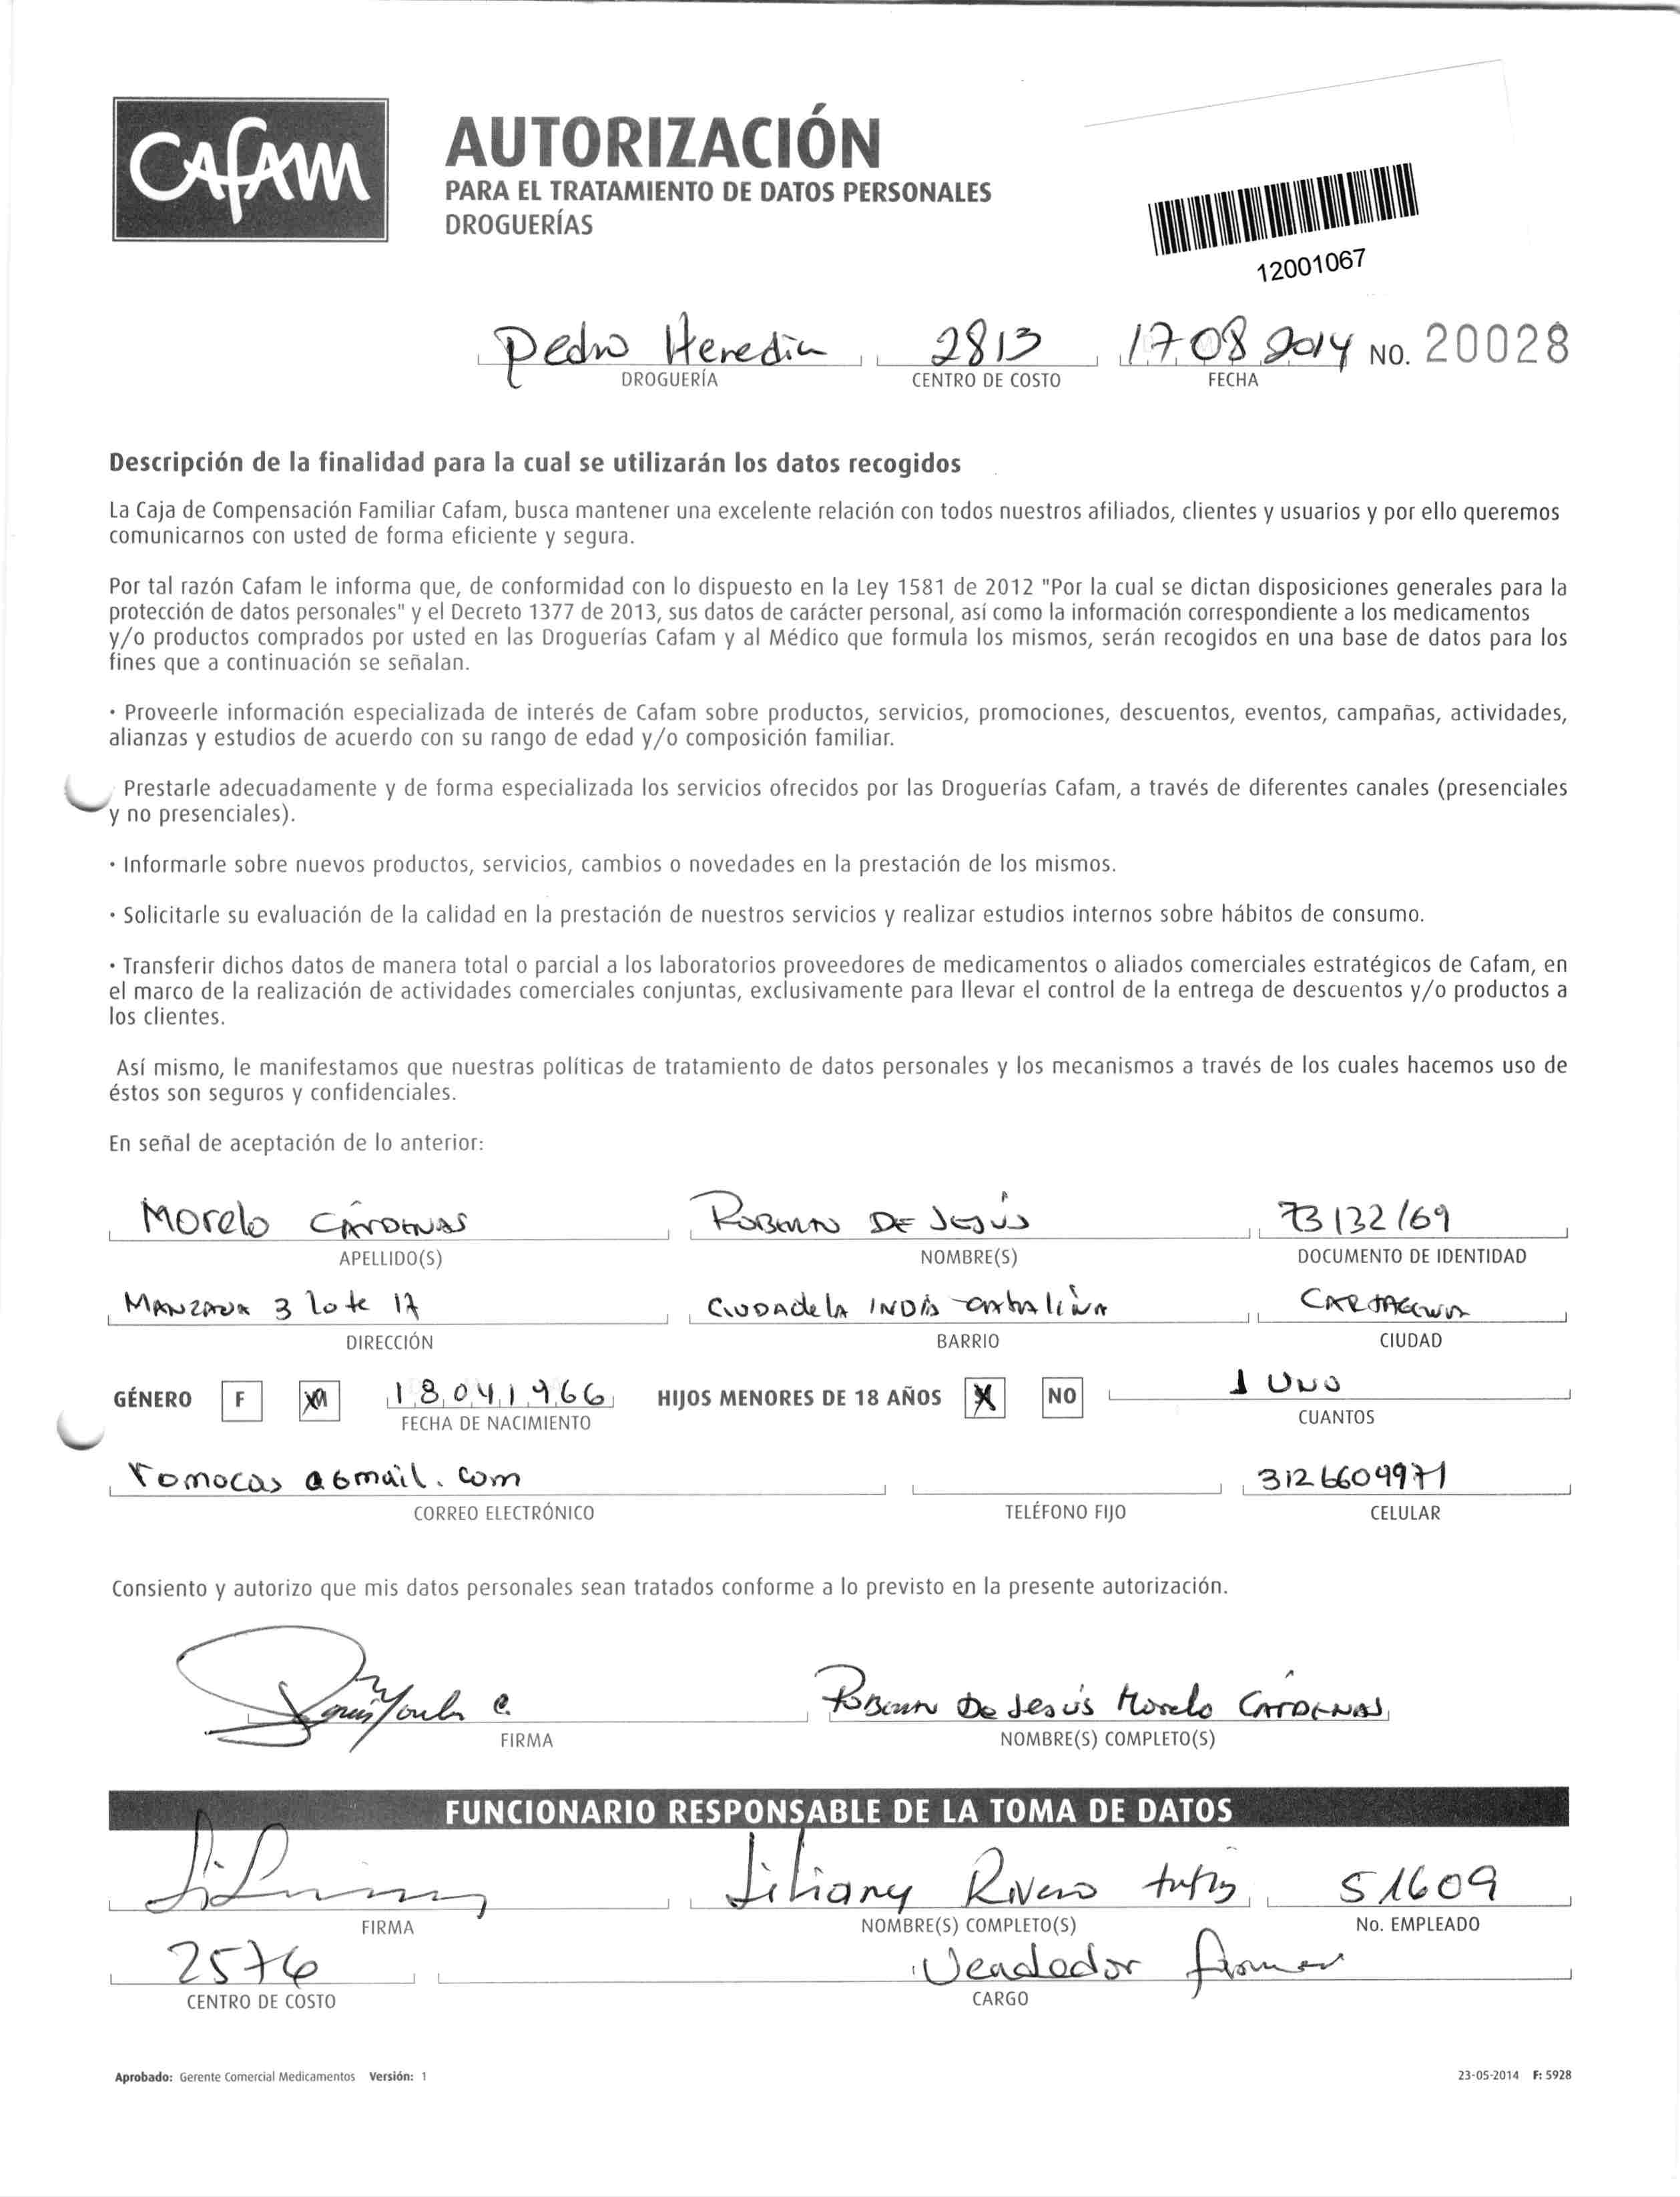 Cafam
AUTORIZACIÓN
PARA EL TRATAMIENTO DE DATOS PERSONALES
DROGUERÍAS
12001067
Pedro Heredia 2813 17 08 2014 NO. 20028
DROGUERÍA CENTRO DE COSTO FECHA
Descripción de la finalidad para la cual se utilizarán los datos recogidos
La Caja de Compensación Familiar Cafam, busca mantener una excelente relación con todos nuestros afiliados, clientes y usuarios y por ello queremos
comunicarnos con usted de forma eficiente y segura.
Por tal razón Cafam le informa que, de conformidad con lo dispuesto en la Ley 1581 de 2012 "Por la cual se dictan disposiciones generales para la
protección de datos personales" y el Decreto 1377 de 2013, sus datos de carácter personal, así como la información correspondiente a los medicamentos
y/o productos comprados por usted en las Droguerías Cafam y al Médico que formula los mismos, serán recogidos en una base de datos para los
fines que a continuación se señalan.
· Proveerle información especializada de interés de Cafam sobre productos, servicios, promociones, descuentos, eventos, campañas, actividades,
alianzas y estudios de acuerdo con su rango de edad y/o composición familiar.
Prestarle adecuadamente y de forma especializada los servicios ofrecidos por las Droguerías Cafam, a través de diferentes canales (presenciales
y no presenciales).
· Informarle sobre nuevos productos, servicios, cambios o novedades en la prestación de los mismos.
· Solicitarle su evaluación de la calidad en la prestación de nuestros servicios y realizar estudios internos sobre hábitos de consumo.
· Transferir dichos datos de manera total o parcial a los laboratorios proveedores de medicamentos o aliados comerciales estratégicos de Cafam, en
el marco de la realización de actividades comerciales conjuntas, exclusivamente para llevar el control de la entrega de descuentos y/o productos a
los clientes.
Así mismo, le manifestamos que nuestras políticas de tratamiento de datos personales y los mecanismos a través de los cuales hacemos uso de
éstos son seguros y confidenciales.
En señal de aceptación de lo anterior:
Morelo CÁRDENAS ROBERTO DE JESÚS 73132169
APELLIDO(S) NOMBRE(S) DOCUMENTO DE IDENTIDAD
MANZANA 3 lote 17 CIUDADELA INDIA CATALINA CARTAGENA
DIRECCIÓN BARRIO CIUDAD
GÉNERO F M 18 04 1966 HIJOS MENORES DE 18 AÑOS X NO 1 UNO
FECHA DE NACIMIENTO CUANTOS
romocas @Gmail.com 3126604971
CORREO ELECTRÓNICO TELÉFONO FIJO CELULAR
Consiento y autorizo que mis datos personales sean tratados conforme a lo previsto en la presente autorización.
ROBERTO De Jesús Morelo CÁRDENAS
FIRMA NOMBRE(S) COMPLETO(S)
FUNCIONARIO RESPONSABLE DE LA TOMA DE DATOS
Liliany Rivero 51609
FIRMA NOMBRE(S) COMPLETO(S) No. EMPLEADO
2576 Vendedor
CENTRO DE COSTO CARGO
Aprobado: Gerente Comercial Medicamentos Versión: 1 23-05-2014 F: 5928